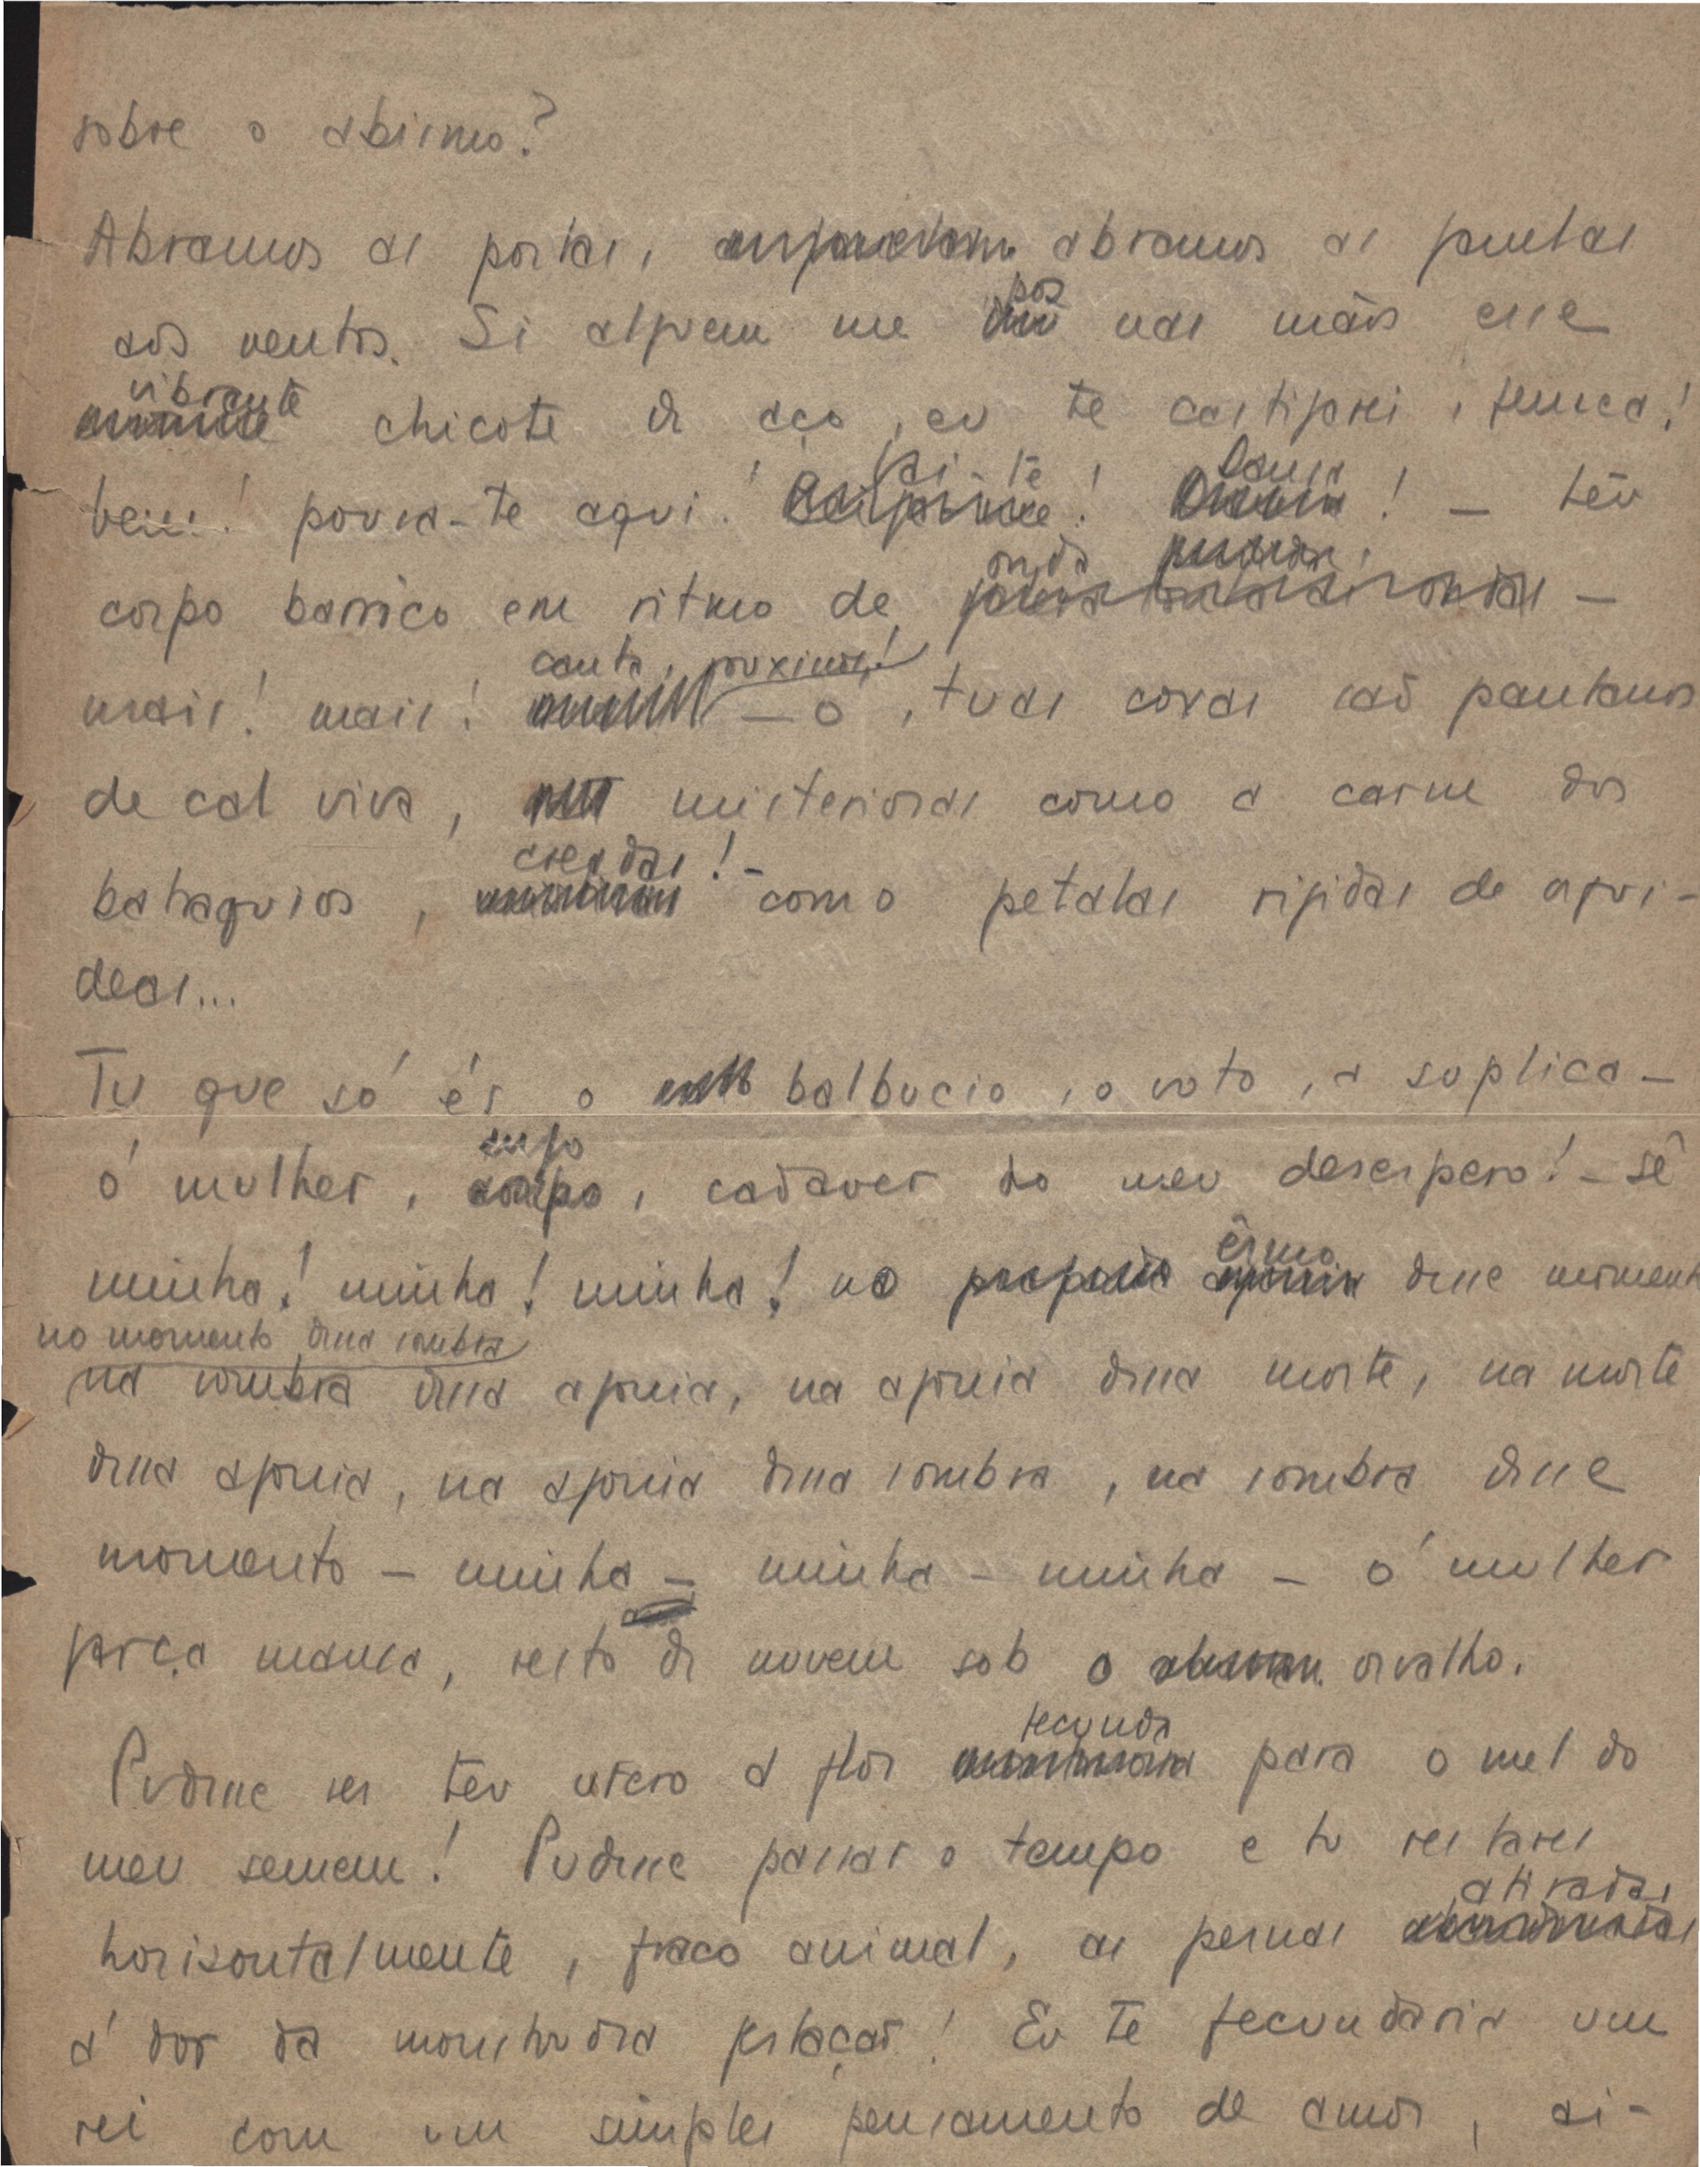 sobre o abismo?
Abramos as portas, abramos as pontas
aos ventos. Si alguem me pos nas mãos esse
vibrante chicote de aço, eu te castigarei, femea!
vem! pousa-te aqui! Sai-te! Dansa! – têu
corpo barrôco em ritmo de onda
mais! mais! canta, proximos! – ó, tuas coxas são pantanos
de cal viva, misteriosas como a carne dos
batraquios, creadas! – como petalas rigidas de orqui-
deas...
Tu que só és o balbucio, o voto, a suplica –
ó mulher, anjo, cadaver do meu desespero! – sê
minha! minha! minha! no êrmo desse momento
no momento dessa sombra
na sombra dessa agonia, na agonia dessa morte, na morte
dessa agonia, na agonia dessa sombra, na sombra desse
momento – minha – minha – minha – ó mulher
garça mansa, resto de nuvem sob o orvalho.
Pudesse ser teu utero a flôr fecunda para o mel do
meu semem! Pudesse passar o tempo e tu restares
horisontalmente, fraco animal, as pernas atiradas
á dor da monstruosa gestação! Eu te fecundaria um
rei com um simples pensamento de amor, ai-